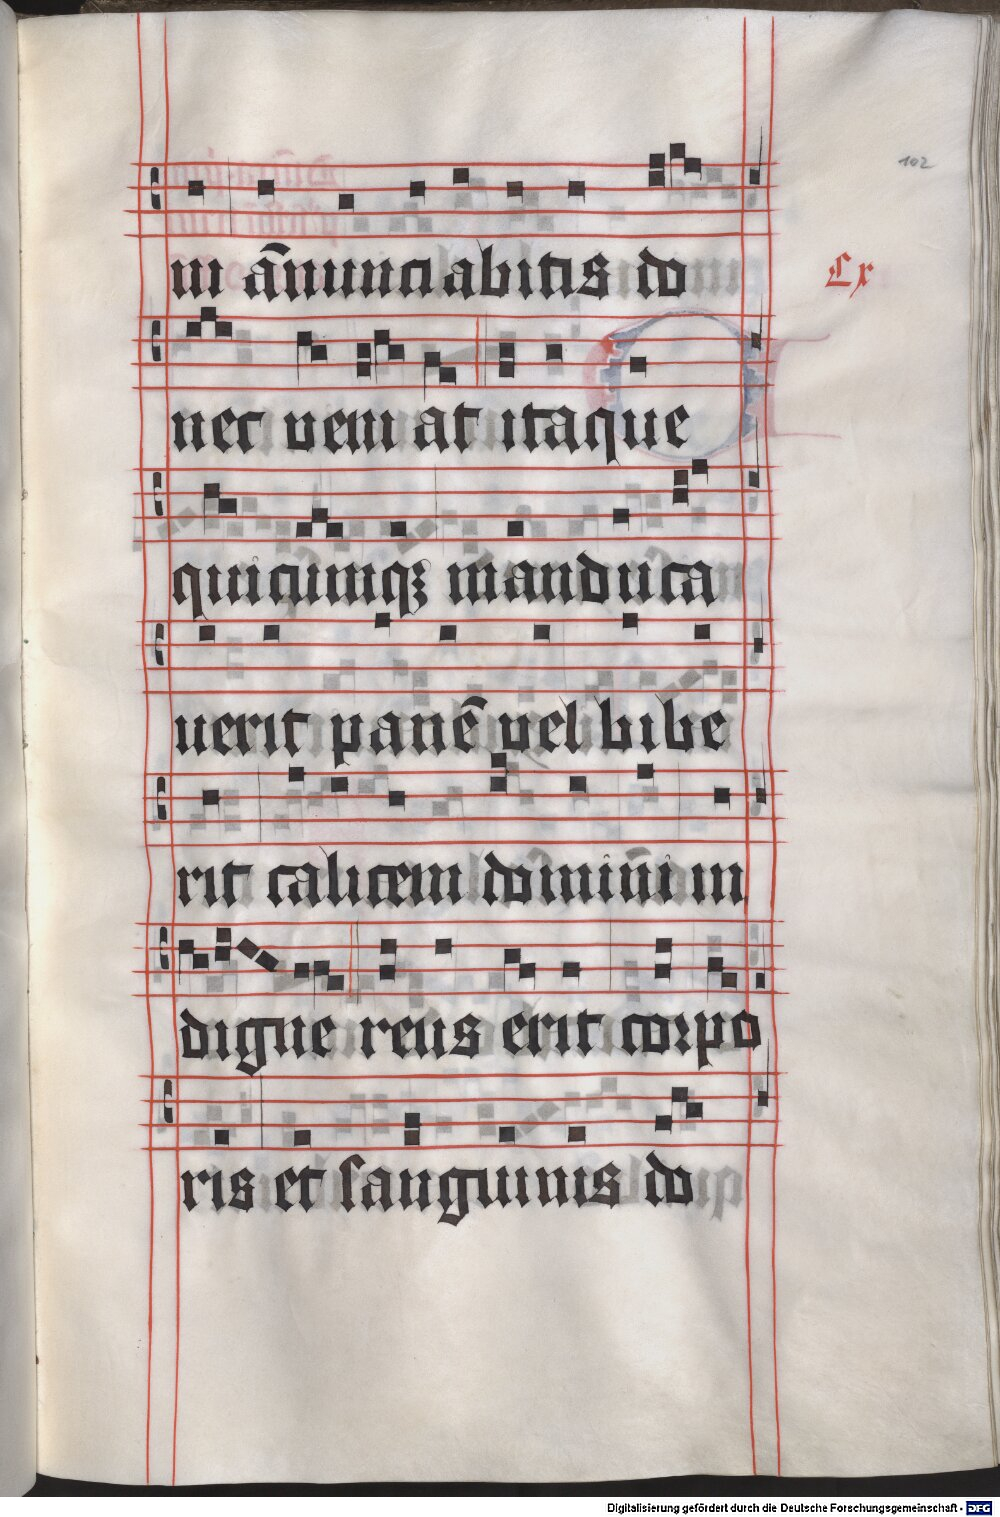 102
m an̄nunciabitis do
Cx
nec veniat itaque
quicumqꝫ manduca
uerit panē vel bibe
rit calicem domin̄i in
digne reus erit corpo
ris et sanguinis do
Digitalisierung gefördert durch die Deutsche Forschungsgemeinschaft - DFG